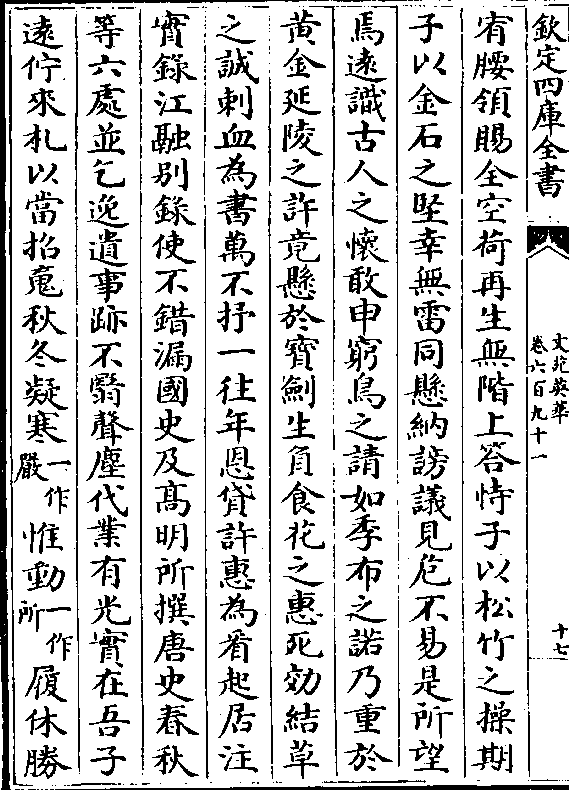 欽定四庫全書
文苑英華
卷六百九十一
十七
宥腰領賜全空荷再生無階上答恃子以松竹之操期
子以金石之堅幸無雷同懸納謗議見危不易是所望
焉遠識古人之懷敢申窮鳥之請如季布之諾乃重於
黄金延陵之許竟懸於寶劍生負食花之惠死効結草
之誠刺血為書萬不抒一往年恩貸許惠為看起居注
實錄江融别錄使不錯漏國史及髙明所撰唐史春秋
等六處並乞逸遺事跡不翳聲塵代業有光實在吾子
遠佇來札以當招䰟秋冬凝寒一作嚴惟動一作所履休勝